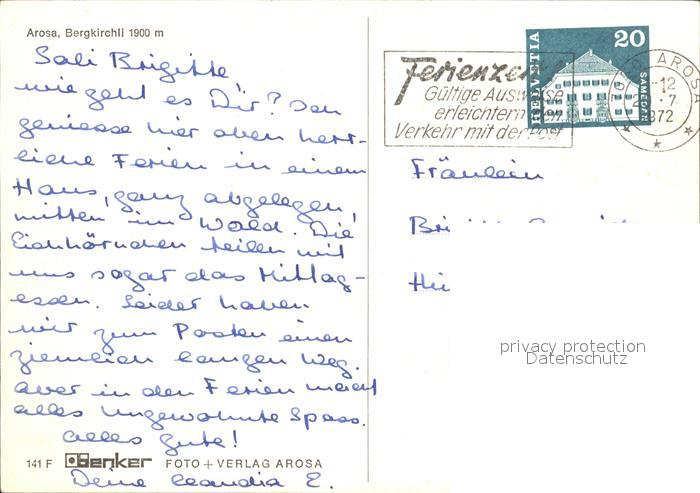 Arosa, Bergkirchli 1900 m
Sali Brigitte
wie geht es Dir? Ich
geniesse hier oben herr-
liche Ferien in einem
Haus, ganz abgelegen,
mitten im Wald. Die
Eichhörnchen teilen mit
uns sogar das Mittag-
essen. Leider haben
wir zum Posten einen
ziemlich langen Weg.
Aber in den Ferien macht
alles Ungewohnte Spass.
Alles Gute!
141 F Benker FOTO + VERLAG AROSA
Deine Claudia E.
Ferienzeit
Gültige Ausweise
erleichtern den
Verkehr mit der Post
HELVETIA
20
SAMEDAN
AROSA
-12
7
1972
Fräulein
Bri
privacy protection
Datenschutz